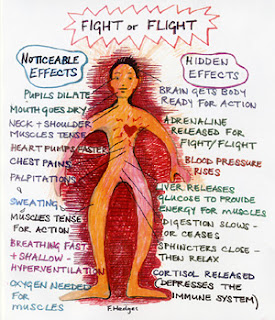 FIGHT or FLIGHT
NOTICEABLE
EFFECTS
PUPILS DILATE
MOUTH GOES DRY
NECK + SHOULDER
MUSCLES TENSE
HEART PUMPS FASTER
CHEST PAINS
PALPITATIONS
SWEATING
MUSCLES TENSE
FOR ACTION
BREATHING FAST
+ SHALLOW -
HYPERVENTILATION
OXYGEN NEEDED
FOR MUSCLES
HIDDEN
EFFECTS
BRAIN GETS BODY
READY FOR ACTION
ADRENALINE
RELEASED FOR
FIGHT/FLIGHT
BLOOD PRESSURE
RISES
LIVER RELEASES
GLUCOSE TO PROVIDE
ENERGY FOR MUSCLES
DIGESTION SLOWS -
OR CEASES
SPHINCTERS CLOSE -
THEN RELAX
CORTISOL RELEASED
(DEPRESSES THE
IMMUNE SYSTEM)
F. Hedges